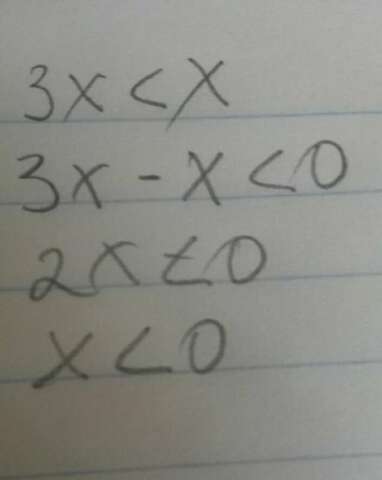 3x < x
3x - x < 0
2x < 0
x < 0